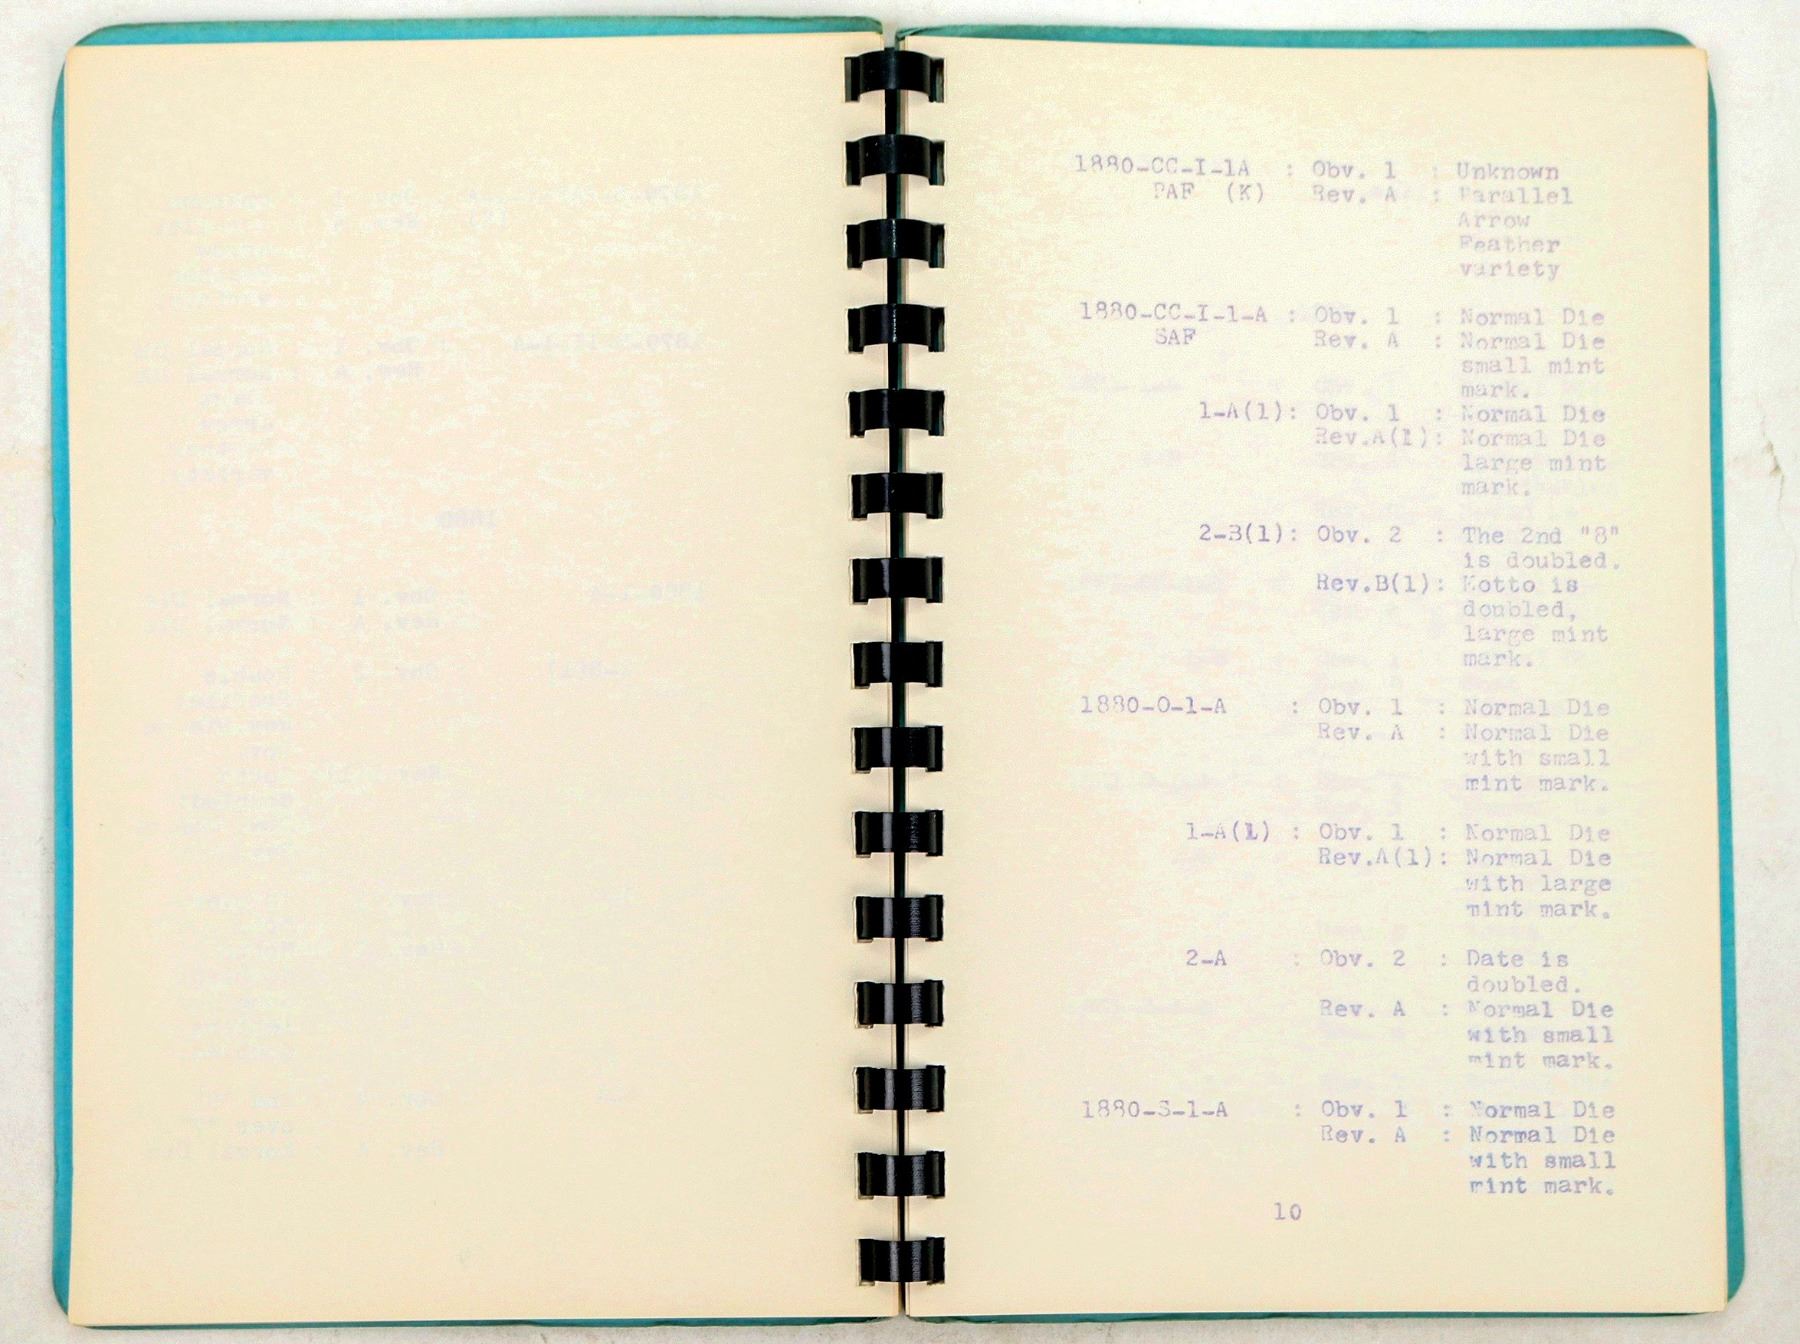 1880-CC-I-1A : Obv. 1 : Unknown
PAF (K) Rev. A : Parallel
Arrow
Feather
variety
1880-CC-I-1-A : Obv. 1 : Normal Die
SAF Rev. A : Normal Die
small mint
mark.
1-A(1): Obv. 1 : Normal Die
Rev.A(1): Normal Die
large mint
mark.
2-B(1): Obv. 2 : The 2nd "8"
is doubled.
Rev.B(1): Motto is
doubled,
large mint
mark.
1880-O-1-A : Obv. 1 : Normal Die
Rev. A : Normal Die
with small
mint mark.
1-A(1) : Obv. 1 : Normal Die
Rev.A(1): Normal Die
with large
mint mark.
2-A : Obv. 2 : Date is
doubled.
Rev. A : Normal Die
with small
mint mark.
1880-S-1-A : Obv. 1 : Normal Die
Rev. A : Normal Die
with small
mint mark.
10